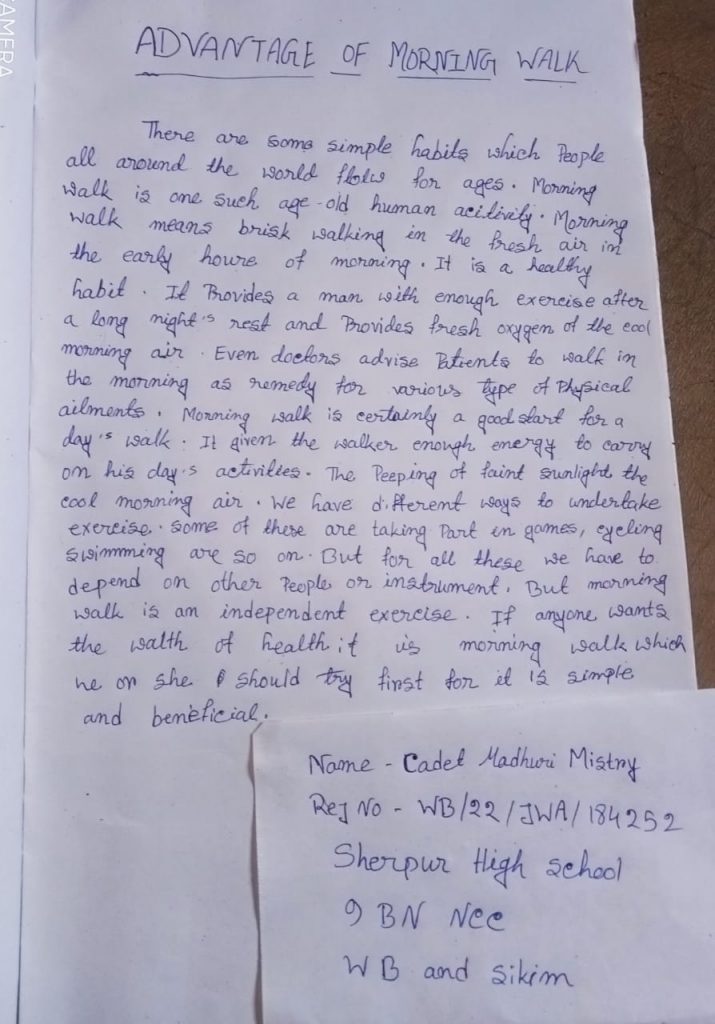 AMERA
ADVANTAGE OF MORNING WALK
There are some simple habits which People
all around the world flow for ages. Morning
walk is one such age-old human acitivity. Morning
walk means brisk walking in the fresh air in
the early houre of morning. It is a healthy
habit. It Provides a man with enough exercise after
a long night's rest and Provides fresh oxygen of the cool
morning air. Even doctors advise Patients to walk in
the morning as remedy for various type of Physical
ailments. Morning walk is certainly a good start for a
day's walk. It given the walker enough energy to carry
on his day's activities. The Peeping of faint sunlight the
cool morning air. We have different ways to undertake
exercise. Some of these are taking Part in games, cycling
swimmming are so on. But for all these we have to
depend on other People or instrument. But morning
walk is an independent exercise. If anyone wants
the walth of health it is morning walk which
he or she should try first for it is simple
and beneficial.
Name - Cadet Madhuri Mistry
Rej No - WB/22/JWA/184252
Sherpur High school
9 BN NCC
WB and Sikim